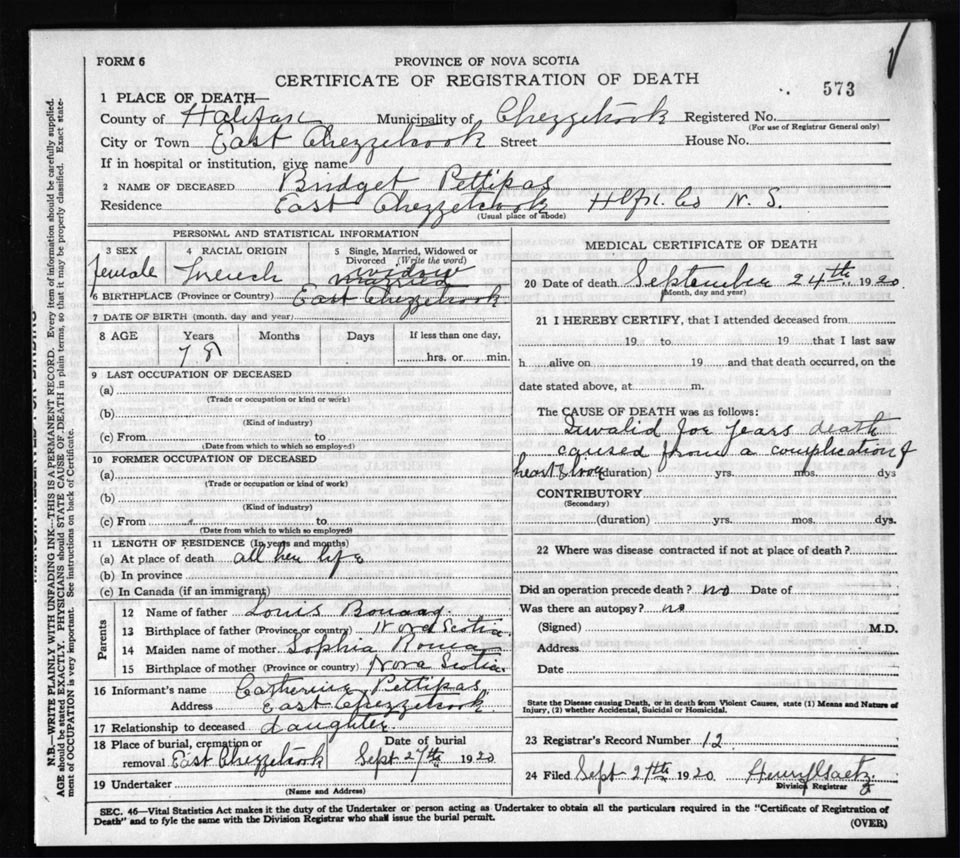 FORM 6
PROVINCE OF NOVA SCOTIA
CERTIFICATE OF REGISTRATION OF DEATH
573
1 PLACE OF DEATH—
County of Halifax Municipality of Chezzetcook Registered No.
(For use of Registrar General only)
City or Town East Chezzetcook Street House No.
If in hospital or institution, give name
2 NAME OF DECEASED Bridget Pettipas
Residence East Chezzetcook Hlfx. Co N. S.
(Usual place of abode)
PERSONAL AND STATISTICAL INFORMATION
3 SEX 4 RACIAL ORIGIN 5 Single, Married, Widowed or
Divorced (Write the word)
female French widow
married
6 BIRTHPLACE (Province or Country) East Chezzetcook
7 DATE OF BIRTH (month, day and year)
8 AGE Years Months Days If less than one day,
78 hrs. or min.
9 LAST OCCUPATION OF DECEASED
(a)
(Trade or occupation or kind or work)
(b)
(Kind of industry)
(c) From to
(Date from which to which so employed)
10 FORMER OCCUPATION OF DECEASED
(a)
(Trade or occupation or kind of work)
(b)
(Kind of industry)
(c) From to
(Date from which to which so employed)
11 LENGTH OF RESIDENCE (In years and months)
(a) At place of death all her life
(b) In province
(c) In Canada (if an immigrant)
Parents
12 Name of father Louis
13 Birthplace of father (Province or country) Nova Scotia
14 Maiden name of mother Sophia
15 Birthplace of mother (Province or country) Nova Scotia
16 Informant's name Catherine Pettipas
Address East Chezzetcook
17 Relationship to deceased daughter
18 Place of burial, cremation or Date of burial
removal East Chezzetcook Sept 27th 1920
19 Undertaker
(Name and Address)
MEDICAL CERTIFICATE OF DEATH
20 Date of death September 24th 1920
(Month, day and year)
21 I HEREBY CERTIFY, that I attended deceased from
19 to 19 that I last saw
h alive on 19 and that death occurred, on the
date stated above, at m.
The CAUSE OF DEATH was as follows:
Invalid for years death
caused from a complication of
heart & (duration) yrs. mos. dys
CONTRIBUTORY
(Secondary)
(duration) yrs. mos. dys.
22 Where was disease contracted if not at place of death?
Did an operation precede death? no Date of
Was there an autopsy? no
(Signed) M.D.
Address
Date
State the Disease causing Death, or in death from Violent Causes, state (1) Means and Nature of
Injury, (2) whether Accidental, Suicidal or Homicidal.
23 Registrar's Record Number 12
24 Filed Sept 27th 1920
Division Registrar
SEC. 46—Vital Statistics Act makes it the duty of the Undertaker or person acting as Undertaker to obtain all the particulars required in the "Certificate of Registration of
Death" and to fyle the same with the Division Registrar who shall issue the burial permit.
(OVER)
N.B.—WRITE PLAINLY WITH UNFADING INK—THIS IS A PERMANENT RECORD. Every item of information should be carefully supplied.
AGE should be stated EXACTLY. PHYSICIANS should STATE CAUSE OF DEATH in plain terms, so that it may be properly classified. Exact state-
ment of OCCUPATION is very important. See instructions on back of Certificate.